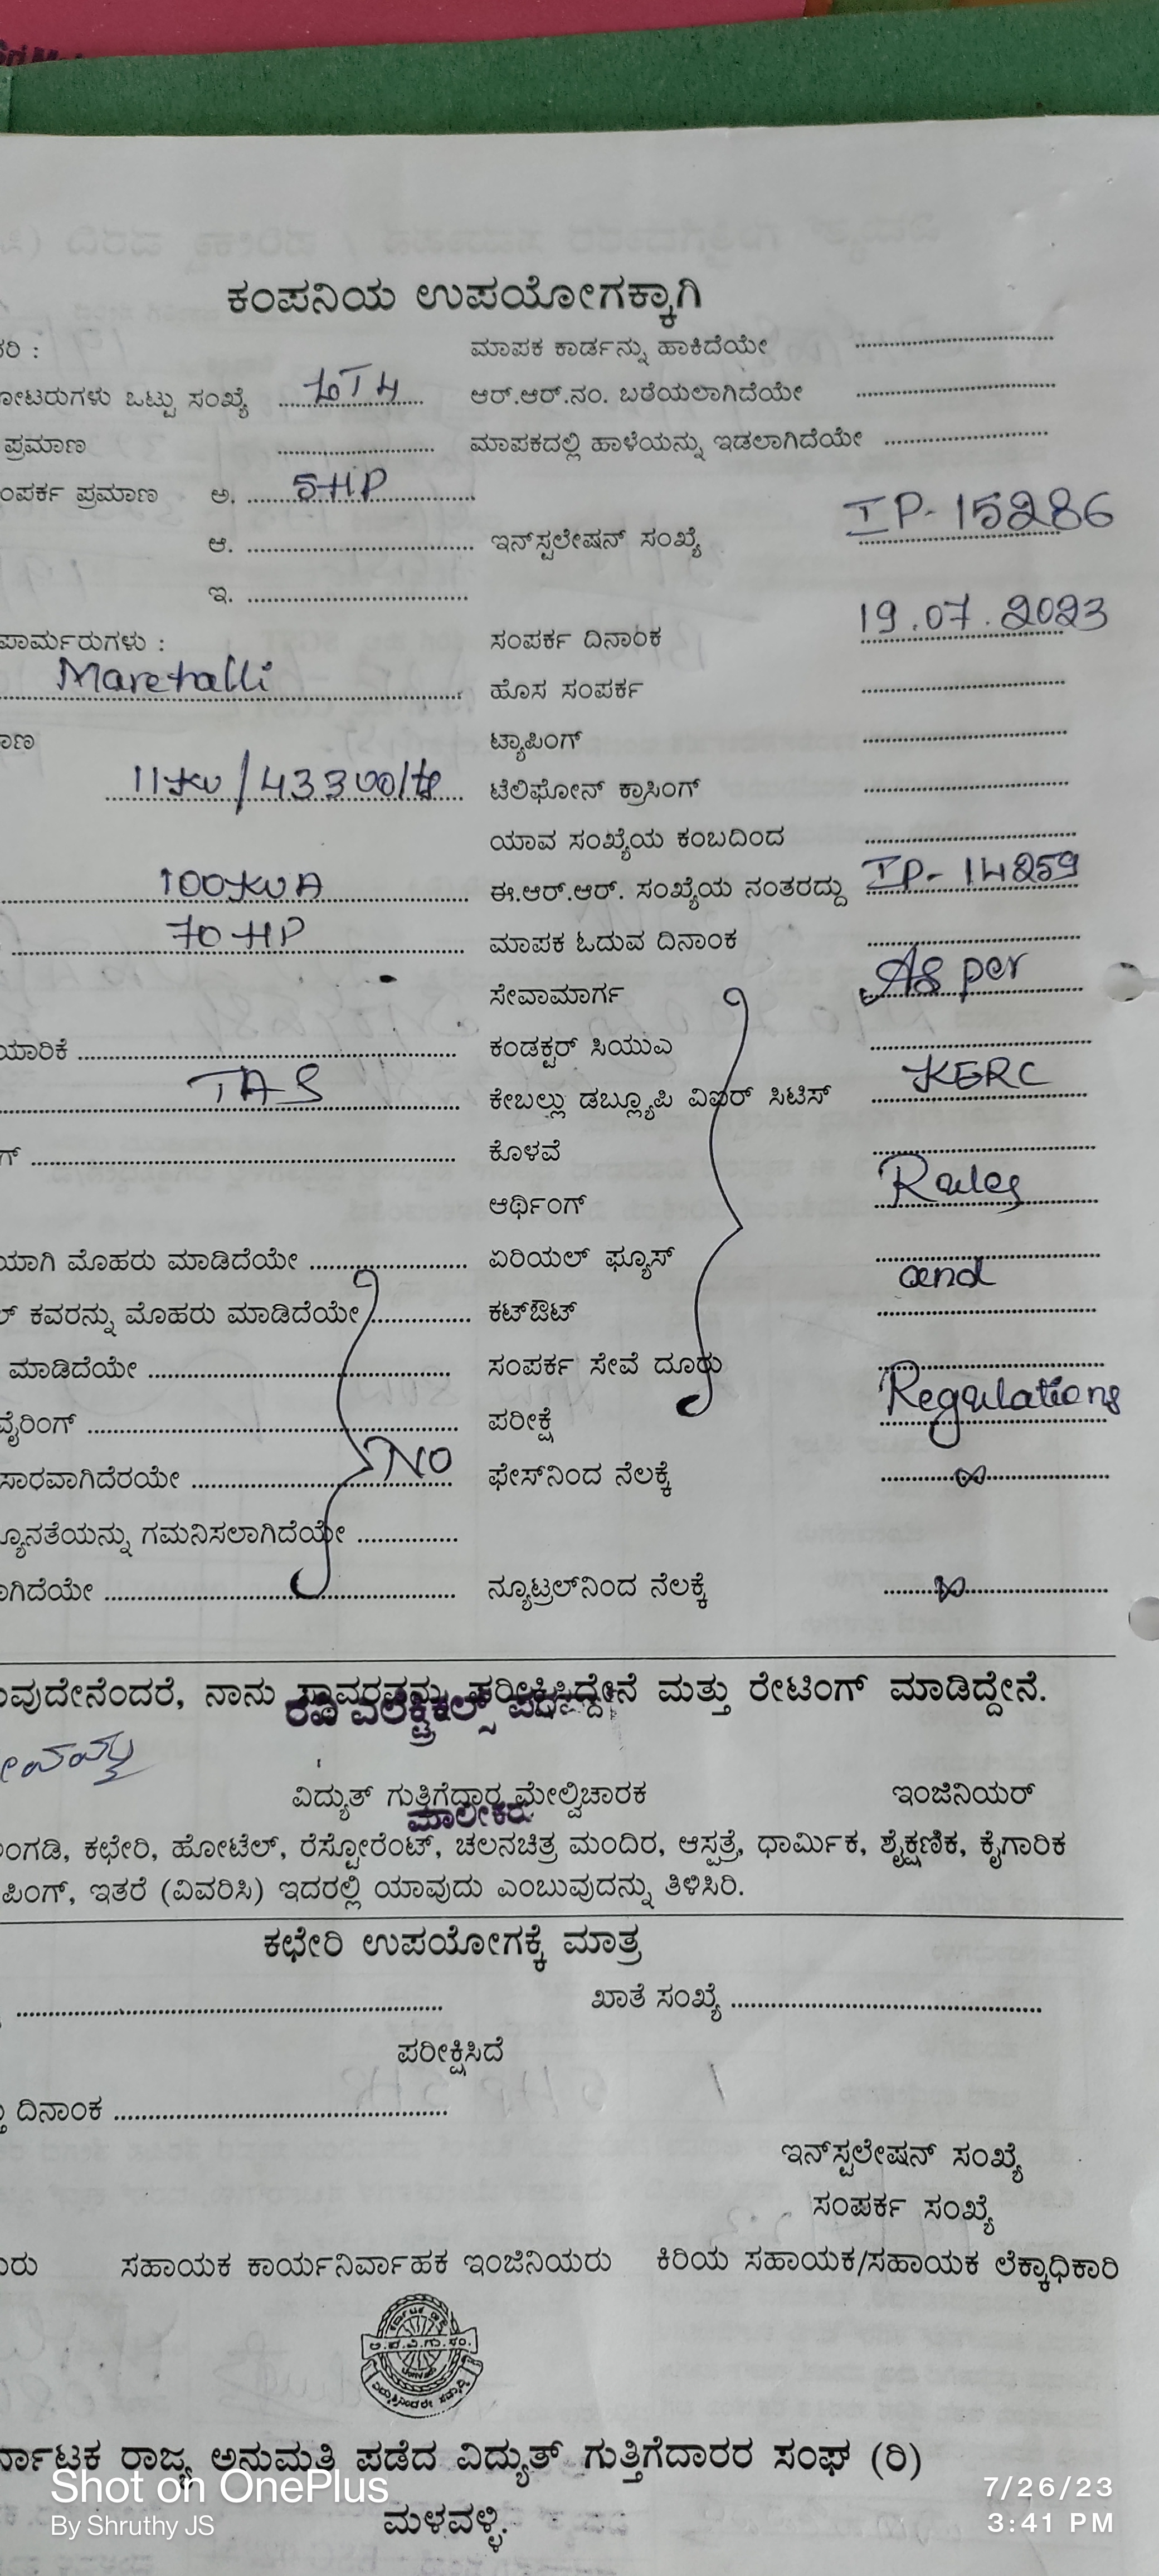 ಕಂಪನಿಯ ಉಪಯೋಗಕ್ಕಾಗಿ
ಮಾಪಕ ಕಾರ್ಡನ್ನು ಹಾಕಿದೆಯೇ
ಒಟ್ಟು ಸಂಖ್ಯೆ ಆರ್.ಆರ್.ನಂ. ಬರೆಯಲಾಗಿದೆಯೇ
ಪ್ರಮಾಣ ಮಾಪಕದಲ್ಲಿ ಹಾಳೆಯನ್ನು ಇಡಲಾಗಿದೆಯೇ
ಪ್ರಮಾಣ ಅ. 5HP
ಆ. ಇನ್‌ಸ್ಟಲೇಷನ್ ಸಂಖ್ಯೆ IP-15286
ಇ.
ಸಂಪರ್ಕ ದಿನಾಂಕ 19.07.2023
Marehalli ಹೊಸ ಸಂಪರ್ಕ
ಟ್ಯಾಪಿಂಗ್
11kv/433volts ಟೆಲಿಫೋನ್ ಕ್ರಾಸಿಂಗ್
ಯಾವ ಸಂಖ್ಯೆಯ ಕಂಬದಿಂದ
100KVA ಈ.ಆರ್.ಆರ್. ಸಂಖ್ಯೆಯ ನಂತರದ್ದು IP-14259
70HP ಮಾಪಕ ಓದುವ ದಿನಾಂಕ
ಸೇವಾಮಾರ್ಗ As per
ಕಂಡಕ್ಟರ್ ಸಿಯುಎ
TAS ಕೇಬಲ್ಲು ಡಬ್ಲ್ಯೂಪಿ ವಿಐರ್ ಸಿಟಿಸ್ KERC
ಕೊಳವೆ
ಆರ್ಥಿಂಗ್ Rules
ಮೊಹರು ಮಾಡಿದೆಯೇ ಏರಿಯಲ್ ಫ್ಯೂಸ್ and
ಕವರನ್ನು ಮೊಹರು ಮಾಡಿದೆಯೇ ಕಟ್‌ಔಟ್
ಮಾಡಿದೆಯೇ ಸಂಪರ್ಕ ಸೇವೆ ದೂರು
ವೈರಿಂಗ್ ಪರೀಕ್ಷೆ Regulations
NO ಫೇಸ್‌ನಿಂದ ನೆಲಕ್ಕೆ ∞
ಗಮನಿಸಲಾಗಿದೆಯೇ
ನ್ಯೂಟ್ರಲ್‌ನಿಂದ ನೆಲಕ್ಕೆ ∞
ನಾನು ಸ್ಥಾವರವನ್ನು ಪರೀಕ್ಷಿಸಿದ್ದೇನೆ ಮತ್ತು ರೇಟಿಂಗ್ ಮಾಡಿದ್ದೇನೆ.
ವಿದ್ಯುತ್ ಗುತ್ತಿಗೆದಾರ ಮೇಲ್ವಿಚಾರಕ ಇಂಜಿನಿಯರ್
ಮಾಲೀಕರು
ಕಛೇರಿ, ಹೋಟೆಲ್, ರೆಸ್ಟೋರೆಂಟ್, ಚಲನಚಿತ್ರ ಮಂದಿರ, ಆಸ್ಪತ್ರೆ, ಧಾರ್ಮಿಕ, ಶೈಕ್ಷಣಿಕ, ಕೈಗಾರಿಕ
ಇತರೆ (ವಿವರಿಸಿ) ಇದರಲ್ಲಿ ಯಾವುದು ಎಂಬುವುದನ್ನು ತಿಳಿಸಿರಿ.
ಕಛೇರಿ ಉಪಯೋಗಕ್ಕೆ ಮಾತ್ರ
ಖಾತೆ ಸಂಖ್ಯೆ
ಪರೀಕ್ಷಿಸಿದೆ
ದಿನಾಂಕ
ಇನ್‌ಸ್ಟಲೇಷನ್ ಸಂಖ್ಯೆ
ಸಂಪರ್ಕ ಸಂಖ್ಯೆ
ಸಹಾಯಕ ಕಾರ್ಯನಿರ್ವಾಹಕ ಇಂಜಿನಿಯರು ಕಿರಿಯ ಸಹಾಯಕ/ಸಹಾಯಕ ಲೆಕ್ಕಾಧಿಕಾರಿ
ಅ.ಪ.ವಿ.ಗು.ಸಂ.
ರ್ನಾಟಕ ರಾಜ್ಯ ಅನುಮತಿ ಪಡೆದ ವಿದ್ಯುತ್ ಗುತ್ತಿಗೆದಾರರ ಸಂಘ (ರಿ)
ಮಳವಳ್ಳಿ.
Shot on OnePlus
By Shruthy JS
7/26/23
3:41 PM